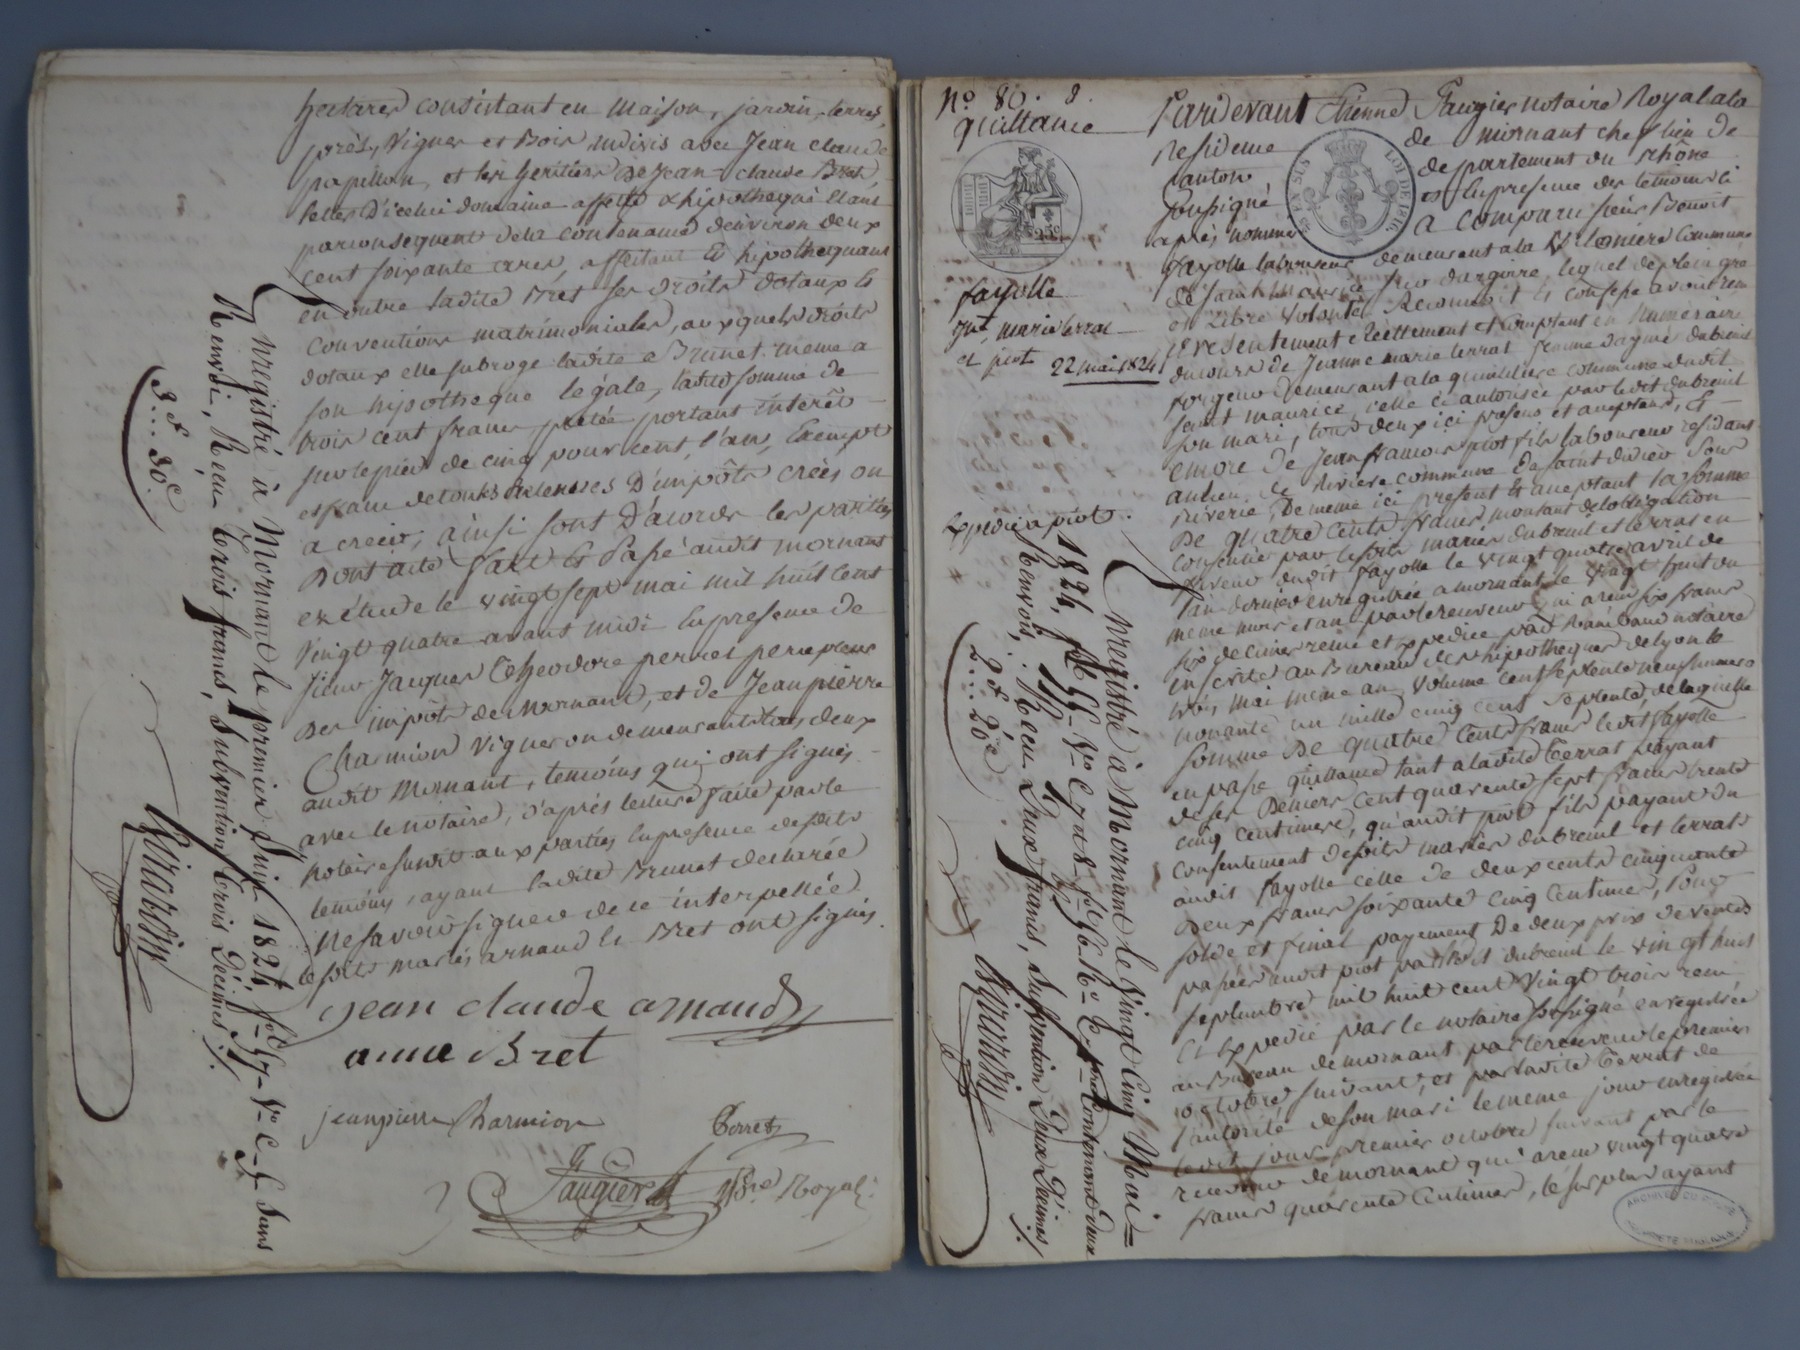 hectares consistant en maison, jardin, terres,
près, Vignes et Bois indivis avec Jean claude
papillon, et les heritiers de Jean claude Bret,
celles d'icelui domaine affecté & hipothequé étant
par consequent de la contenance d'environ deux
cent soixante ares, affectant Et hipothequant
en outre ladite Bret ses droits dotaux Et
conventions matrimoniales, auxquels droits
dotaux elle subroge ladite Brunet meme a
son hipotheque légale, ladite somme de
trois cent francs prétée portant interêt
sur le pied de cinq pour cent, l'an, Exempt
et franc de toutes retenues D'impôts créés ou
a créer, ainsi sont D'acord les parties
Dont acte fait Et Passé audit mornant
en étude le vingt sept mai mil huit cent
vingt quatre avant midi En presence de
sieur Jacques Théodore perret percepteur
Des impots de Mornant, et de Jean pierre
Charmion Vigneron demeurant tous deux
audit Mornant, temoins qui ont signés
avec le notaire, d'après lecture faite par le
notaire susdit aux parties En presence desdits
temoins, ayant ladite Brunet declarée
Ne savoir signer de ce interpellée.
lesdits mariés arnaud Et Bret ont signés.
jean claude arnaud
anne Bret
jeanpierre Charmion
Perret
Faugier Nore Royal
Enregistré à Mornant le premier Juin 1824 fol 57 Vo C 5 sans
Renvoi, Reçu Trois francs, Subvention Trois Décimes
3f 30c
Girardin
No 80. 8.
quittance
25c
fayolle
Jne marie terrat
et piot
22 mai 1824
Expedié a piot.
LOI DE 1816
EN SUS
Pardevant Etienne Faugier notaire Royal a la
Residence de mornant chef lieu de
Canton departement du rhône
soussigné Et En presence des temoins ci
après nommés a comparu sieur Benoit
fayolle laboureur demeurant a la Valoniere Commune
de saint Maurice sur dargoire, lequel de plein gré
et Libre volonté Reconnoit Et confesse avoir reçu
presentement réellement et comptant en Numeraire
du cours de Jeanne marie terrat femme d'aymé dubreuil
forgeur demeurant a la commune dudit
saint maurice, celle ci autorisée par ledit dubreuil
son mari, tous deux ici presens et acceptans, Et
encore de Jean francois piot fils laboureur residant
au lieu de Riviere commune de saint didier sous
Riverie, De meme ici present Et acceptant la somme
De quatre Cents francs, montant de lobligation
Consentie par lesdits mariés dubreuil et terrat en
faveur dudit fayolle le vingt quatre avril de
l'an dernier enregistrée a mornant le vingt huit du
meme mois et an par le receveur qui a reçu six francs
six decimes remis et expediée par Rambaud notaire
inscrite au Bureau des hipotheques de Lyon le
trois mai meme an Volume cent septante neuf numero
nonante un mille cinq cens septente, de laquelle
somme De quatre Cents francs ledit fayolle
en passe quittance tant a ladite terrat payant
de ses Deniers Cent quarente sept francs trente
cinq centimes, qu'audit piot fils payant du
consentement desdits mariés dubreuil et terrat
audit fayolle celle de deux cents cinquante
deux francs soixante cinq Centimes, Pour
solde et final payement De deux prix de ventes
passées audit piot par ledit dubreuil le vingt huit
septembre mil huit cent Vingt trois reçu
Et Expedié par le notaire soussigné enregistrée
au Bureau de mornant par le receveur le premier
octobre suivant, et par ladite terrat de
l'autorité de son mari le meme jour enregistrée
ledit jour premier octobre suivant par le
receveur de mornant qui a reçu vingt quatre
francs quarente Centimes, le surplus ayant
Enregistré à Mornant le Vingt Cinq Mai
1824, fol 55 Vo
Renvoi, Reçu Deux francs, Subvention Deux Décimes
2f 20c
Girardin